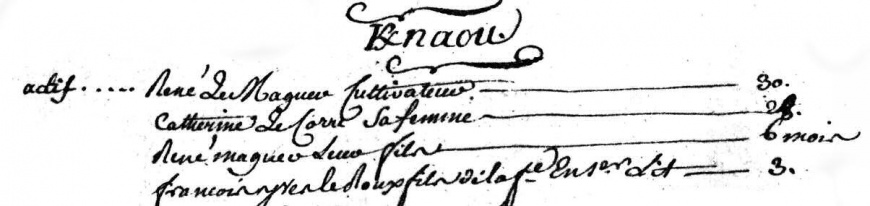 Knaou
actif..... René Le Maguer Cultivateur 30.
Catherine Le Corre Sa femme 28.
René maguer Leur fils 6 mois
francois yves le Roux fils de la fe En 1er Lit 3.